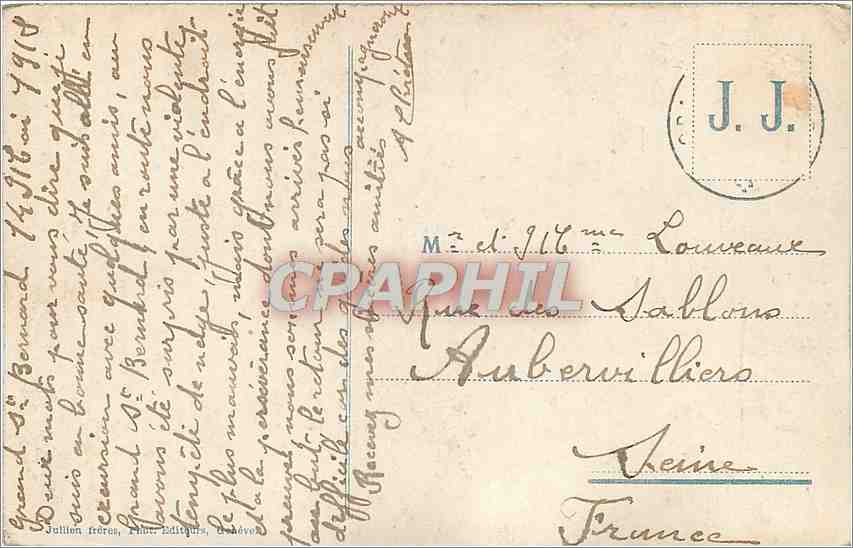 Grand St Bernard 14 Mai 1918
Deux mots pour vous dire que je
suis en bonne santé. Je suis allé en
excursion avec quelques amis, au
Grand St Bernard, en route nous
avons été surpris par une violente
tempête de neige, juste à l'endroit
le plus mauvais, mais grâce à l'énergie
et à la persévérance dont nous avons fait
preuve, nous sommes arrivés heureusement
au but, le retour ne sera pas si
difficile car des guides nous accompagneront
Recevez mes sincères amitiés
J. J.
Mr et Mme Louveaux
Rue des Sablons
Aubervilliers
Seine
France
CPAPHIL
Jullien frères, Phot. Editeurs, Genève